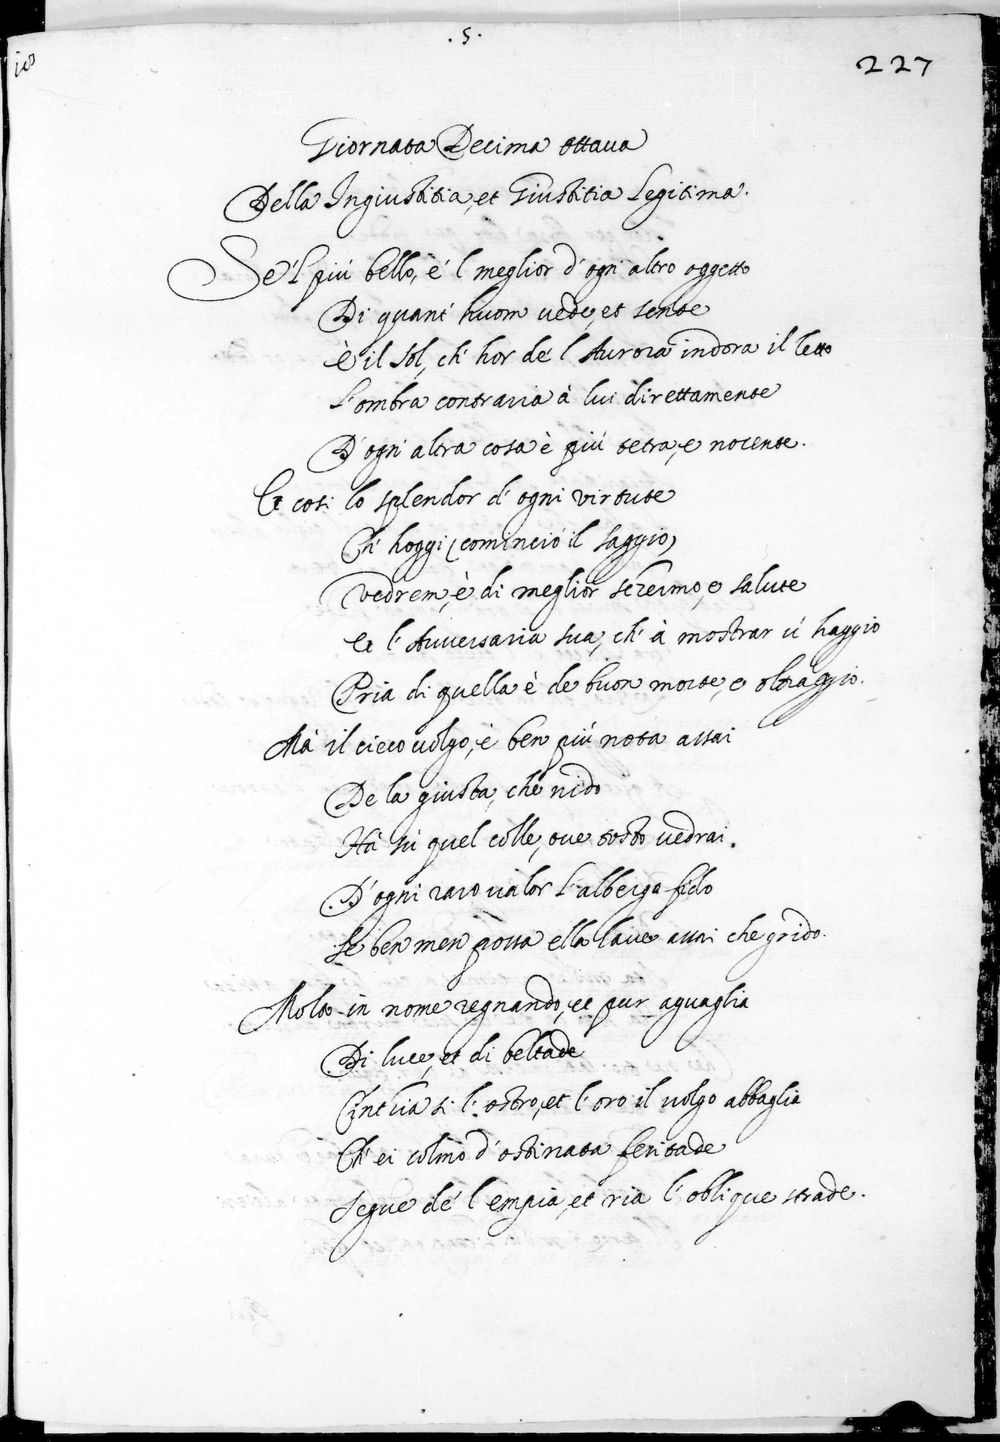 .5.
227
Giornata Decima ottaua
Della Ingiustitia, et Giustitia Legitima.
Se 'l piú bello, e' l meglior d' ogni altro oggetto
Di quant' huom uede, et sente
È il Sol, ch' hor de' l Aurora indora il letto
L' ombra contraria à lui direttamente
D' ogni altra cosa è piú tetra, e nocente.
Et cosi lo splendor d' ogni virtute
Ch' hoggi (cominciò il saggio)
Vedrem, è di meglior schermo, e salute
Et l' Auuersaria sua, ch' à mostrar u' haggio
Pria di quella è de buon morte, e oltraggio.
Mà il cieco uolgo, è ben piú nota assai
De la giusta, che nido
Hà sù quel colle, oue tosto uedrai.
D' ogni raro ualor l' albergo fido
Se ben men possa ella haue assai che grido.
Molto in nome regnando, et pur aguaglia
Di luce, et di beltade
Cinthia sì l' ostro, et l' oro il uolgo abbaglia
Ch' ei colmo d' ostinata feritade
Segue de' l empia, et ria l' oblique strade.